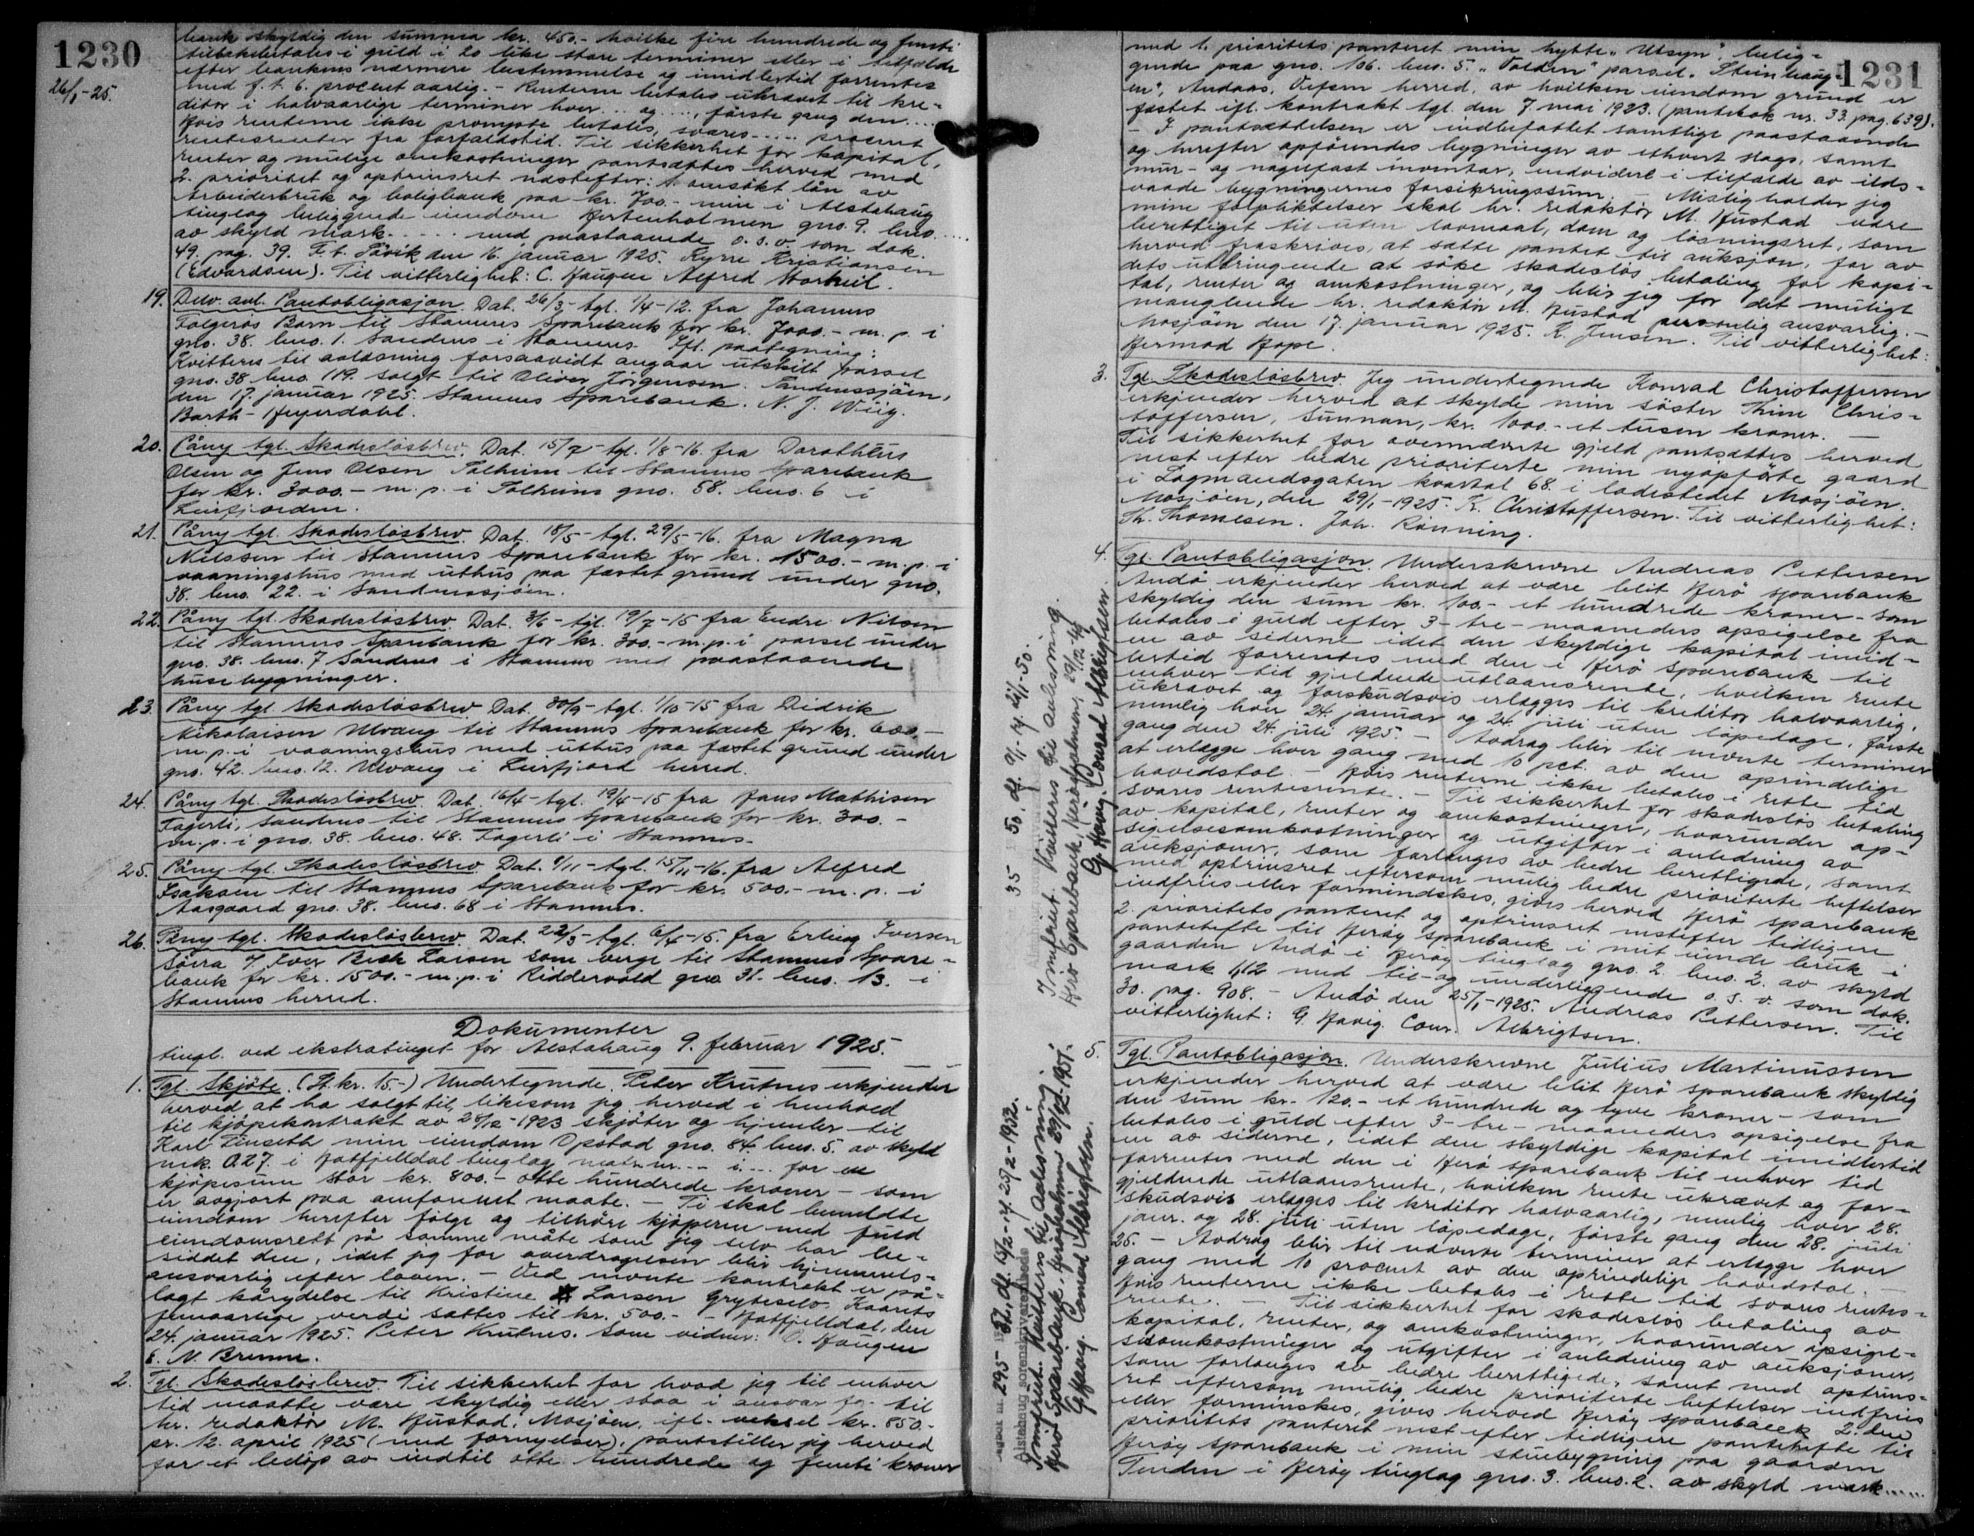 1230
26/1-25.
bank skyldig den summa kr. 450.- hvilke fire hundrede og femti
tilbakebetales i guld i 20 like store terminer eller i tilfælde
efter bankens nærmere bestemmelse og imidlertid forrentes
med f. t. 6. procent aarlig. - Renterne betales ukrævet til kre-
ditor i halvaarlige terminer hver ... og ...., første gang den ....
Hvis renterne ikke prompte betales, svares .... procent
rentesrenter fra forfaldstid. Til sikkerhet for kapital,
renter og mulige omkostninger pantsættes herved med
2. prioritet og optrinsret næstefter: 1. omsøkt lån av
Arbeiderbruk og boligbank paa kr. 700.- min i Alstahaug
tinglag beliggende eiendom Hestenholmen gno. 9. bno. ....
av skyld mark ..... med paastaaende o. s. v. som dok.
49. pag. 39. F. t. Søvik den 16. januar 1925. Kyrre Kristiansen
(Edvardsen). Til vitterlighet: C. Haugen Alfred Storheil.
19. Delv. avl. Pantobligasjon. Dat. 26/3 - tgl. 1/4-12. fra Johannes
Falgerøs Barn til Stamnes Sparebank for kr. 7000.- m. p. i
gno. 38. bno. 1. Sandnes i Stamnes. Ifl. paategning:
Kvitteres til avlæsning forsaavidt angaar utskilt parsel
gno. 38 bno. 119. solgt til Oliver Jørgensen. Sandnessjøen,
den 17. januar 1925. Stamnes Sparebank. N. J. Wiig.
Barth-Heyerdahl.
20. Påny tgl. Skadesløsbrev. Dat. 15/7 - tgl. 1/8-16. fra Dorotheus
Olsen og Jens Olsen Talheim til Stamnes Sparebank
for kr. 3000.- m. p. i Talheims gno. 58. bno. 6 i
Leirfjorden.
21. Påny tgl. Skadesløsbrev. Dat. 18/5 - tgl. 29/5-16. fra Magna
Nilssen til Stamnes Sparebank for kr. 1500.- m. p. i
vaaningshus med uthus paa fæstet grund under gno.
38. bno. 22. i Sandnessjøen.
22. Påny tgl. Skadesløsbrev. Dat. 3/6 - tgl. 19/7-15 fra Endre Nilsen
til Stamnes Sparebank for kr. 300.- m. p. i parsel under
gno. 38. bno. 7 Sandnes i Stamnes med paastaaende
husebygninger.
23. Påny tgl. Skadesløsbrev Dat. 30/9 - tgl. 1/10-15 fra Didrik
Nikolaisen Ulvang til Stamnes Sparebank for kr. 600.-
m. p. i vaaningshus med uthus paa fæstet grund under
gno. 42. bno. 12. Ulvang i Leirfjord herred.
24. Påny tgl. Skadesløsbrev. Dat. 16/4 - tgl. 19/4-15 fra Hans Mathisen
Fagerli, Sandnes til Stamnes Sparebank for kr. 300.-
m. p. i gno. 38. bno. 48. Fagerli i Stamnes.
25. Påny tgl. Skadesløsbrev Dat. 9/11 - tgl. 15/11-16. fra Alfred
Isaksen til Stamnes Sparebank for kr. 500.- m. p. i
Aasgaard gno. 38. bno. 68 i Stamnes.
26. Påny tgl. Skadesløsbrev. Dat. 22/3 - tgl. 6/4-15. fra Erling Iversen
Søvra v/ Iver Bech Larsen som verge til Stamnes Spare-
bank for kr. 1500.- m. p. i Riddervold gno 31. bno. 13. i
Stamnes herred.
Dokumenter
tingl. ved ekstratinget for Alstahaug 9. februar 1925.
1. Tgl. Skjøte. (St. kr. 15.-) Undertegnede Peter Krutnes erkjender
herved at ha solgt til, likesom jeg herved i henhold
til kjøpekontrakt av 28/12-1923 skjøter og hjemler til
Karl Zinseth min eiendom Opstad gno. 84. bno. 5. av skyld
mrk. 0.27. i Hatfjelldal tinglag, matr. nr. ... i .... for en
kjøpesum stor kr. 800.- otte hundrede kroner - som
er avgjort paa omforenet maate. - Ti skal bemeldte
eiendom herefter følge og tilhøre kjøperen med fuld
eiendomsrett på samme måte som jeg selv har be-
siddet den, idet jeg for overdragelsen blir hjemmels-
ansvarlig efter loven. - Ved nævnte kontrakt er på-
lagt kårydelse til Kristine Larsen Grytselv. Kaarets
femaarlige verdi sættes til kr. 500.- Hatfjelldal, den
24. januar 1925. Peter Krutnes. Som vidner: O. Haugen
E. N. Brenne.
2. Tgl. Skadesløsbrev. Til sikkerhet for hvad jeg til enhver
tid maatte være skyldig eller staa i ansvar for til
hr. redaktør M. Hustad, Mosjøen, ifl. veksel kr. 850.-
pr. 12. april 1925 (med fornyelser), pantstiller jeg herved
for et beløp av indtil otte hundrede og femti kroner
1231
med 1. prioritets panteret min hytte „Utsyn", belig-
gende paa gno. 106. bno. 5. „Volden" parsel. „Steinhaug-
en", Andaas, Vefsen herred, av hvilken eiendom grund er
fæstet ifl. kontrakt tgl. den 7. mai 1923. (pantebok nr. 33. pag. 639).
- I pantsættelsen er indbefattet samtlige paastaaende
og herefter opførendes bygninger av ethvert slags, samt
mur- og nagelfast inventar, endvidere i tilfælde av ilds-
vaade bygningernes forsikringssum. - Misligholder jeg
mine forpliktelser skal hr. redaktør M. Hustad være
berettiget til uten lovmaal, dom og løsningsret, som
herved fraskrives, at sætte pantet til auksjon, for av
dets utbringende at søke skadesløs betaling for kapi-
tal, renter og omkostninger, og blir jeg for det mulige
manglende hr. redaktør M. Hustad personlig ansvarlig. -
Mosjøen den 17. januar 1925. K. Jensen. Til vitterlighet:
Hermod Hope.
3. Tgl. Skadesløsbrev. Jeg undertegnede Konrad Christoffersen
erkjender herved at skylde min søster Trine Chris-
toffersen, Sunnan, kr. 1000.- et tusen kroner. -
Til sikkerhet for ovennævnte gjeld pantsættes herved
nest efter bedre prioriterte min nyopførte gaard
i Lagmandsgaten kvartal 68. i ladestedet Mosjøen.
Mosjøen, den 29/1-1925. K. Christoffersen. Til vitterlighet:
Th. Thomesen. Joh. Rønning.
4. Tgl. Pantobligasjon. Underskrevne Andreas Pettersen
Andø erkjender herved at være blit Herø sparebank
skyldig den sum kr. 100.- et hundrede kroner - som
betales i guld efter 3 - tre - maaneders opsigelse fra
en av siderne idet den skyldige kapital imid-
lertid forrentes med den i Herø Sparebank til
enhver tid gjeldende utlaansrente, hvilken rente
ukrævet og forskudsvis erlægges til kreditor halvaarlig,
nemlig hver 24. januar og 24. juli uten løpedage, første
gang den 24. juli 1925. - Avdrag blir til nævnte terminer
at erlægge hver gang med 10 pct. av den oprindelige
hovedstol. - Hvis renterne ikke betales i rette tid
svares rentesrente. - Til sikkerhet for skadesløs betaling
av kapital, renter og omkostninger, hvorunder op-
sigelsesomkostninger og utgifter i anledning av
auksjoner, som forlanges av bedre berettigede, samt
med optrinsret eftersom mulig bedre prioriterte heftelser
indfries eller formindskes, gives herved Herø sparebank
2. prioritets panteret og optrinsret nestefter tidligere
pantehefte til Herøy sparebank i mit eiende bruk i
gaarden Andø i Herøy tinglag gno. 2. bno. 2. av skyld
mark 1,12 med til- og underliggende o. s. v. som dok.
30. pag. 908. - Andø den 25/1-1925. Andreas Pettersen. Til
vitterlighet: G. Havig. Conr. Albrigtsen.
5. Tgl. Pantobligasjon. Underskrevne Julius Martinussen
erkjender herved at være blit Herø sparebank skyldig
den sum kr. 120.- et hundrede og tyve kroner - som
betales i guld efter 3 - tre - maaneders opsigelse fra
en av siderne, idet den skyldige kapital imidlertid
forrentes med den i Herø sparebank til enhver tid
gjeldende utlaansrente, hvilken rente ukrævet og for-
skudsvis erlægges til kreditor halvaarlig, nemlig hver 28.
janr. og 28. juli uten løpedage, første gang den 28. juli
25. - Avdrag blir til nævnte terminer at erlægge hver
gang med 10 procent av den oprindelige hovedstol. -
Hvis renterne ikke betales i rette tid svares rentes-
rente. - Til sikkerhet for skadesløs betaling av
kapital, renter, og omkostninger, hvorunder opsigel-
sesomkostninger og utgifter i anledning av auksjoner,
som forlanges av bedre berettigede, samt med optrins-
ret eftersom mulig bedre prioriterte heftelser indfries
eller forminskes, gives herved Herøy sparebank 2. den
prioritets panteret nest efter tidligere pantehefte til
Herøy sparebank i min stuebygning paa gaarden
Tenden i Herøy tinglag gno. 3. bno. 2. av skyld mark ......
35 50, df. 9/1-1950.
Innfriet. Kvitteres til avlesning.
Herø Sparebank, Herøyholmen, 29/12 49
G Havig Conrad Albrigtsen.
295 52, df. 16/2
Alstahaug sorenskriverembede
Innfriet. Kvitteres til avlesning.
Herø Sparebank, Herøyholmen 29/12-1951.
G Havig. Conrad Albrigtsen.